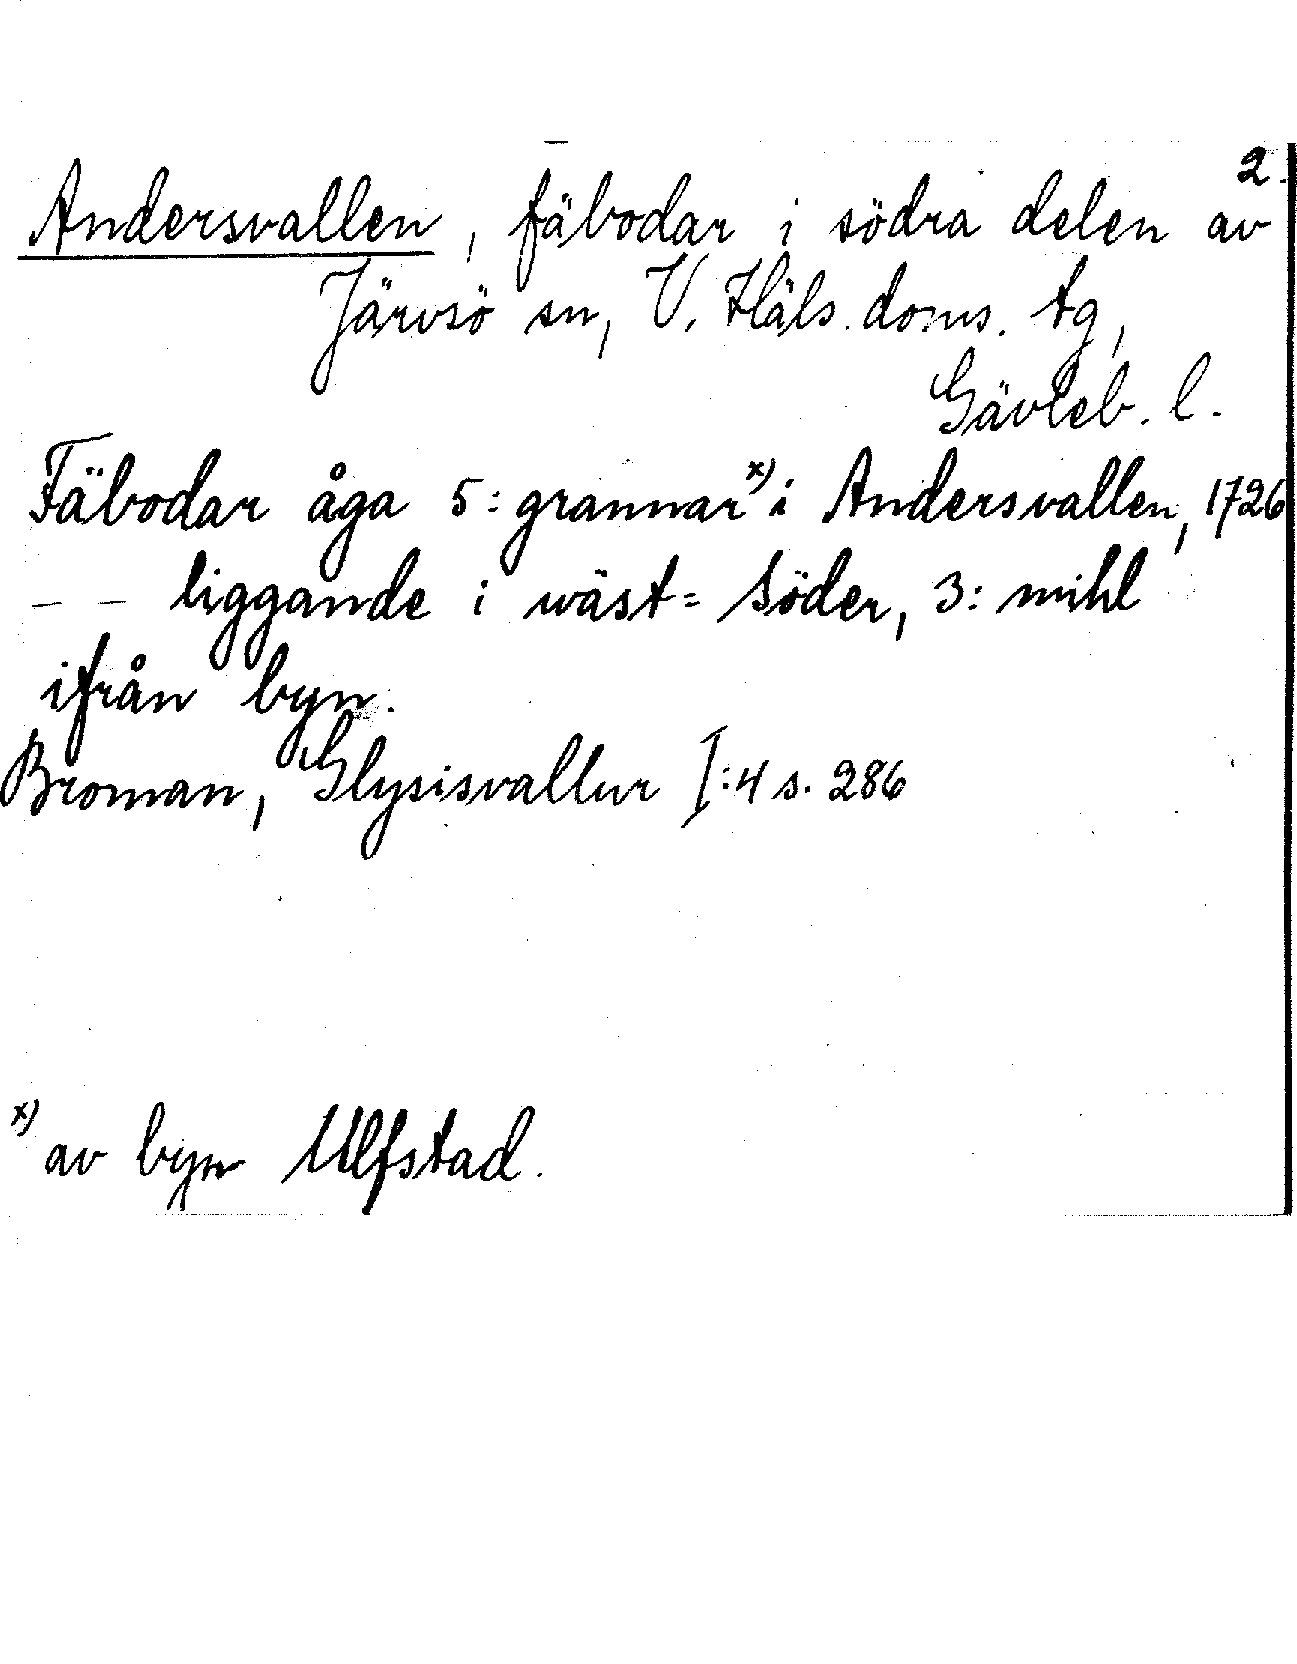 2.
Andersvallen, fäbodar i södra delen av
Järvsö sn, V. Häls. doms. tg,
Gävleb. l.
Fäbodar åga 5: grannar x) i Andersvallen, 1726
– – liggande i wäst= Söder, 3: mihl
ifrån byn.
Broman, Glysisvallur I:4 s. 286
x) av byn Ulfstad.